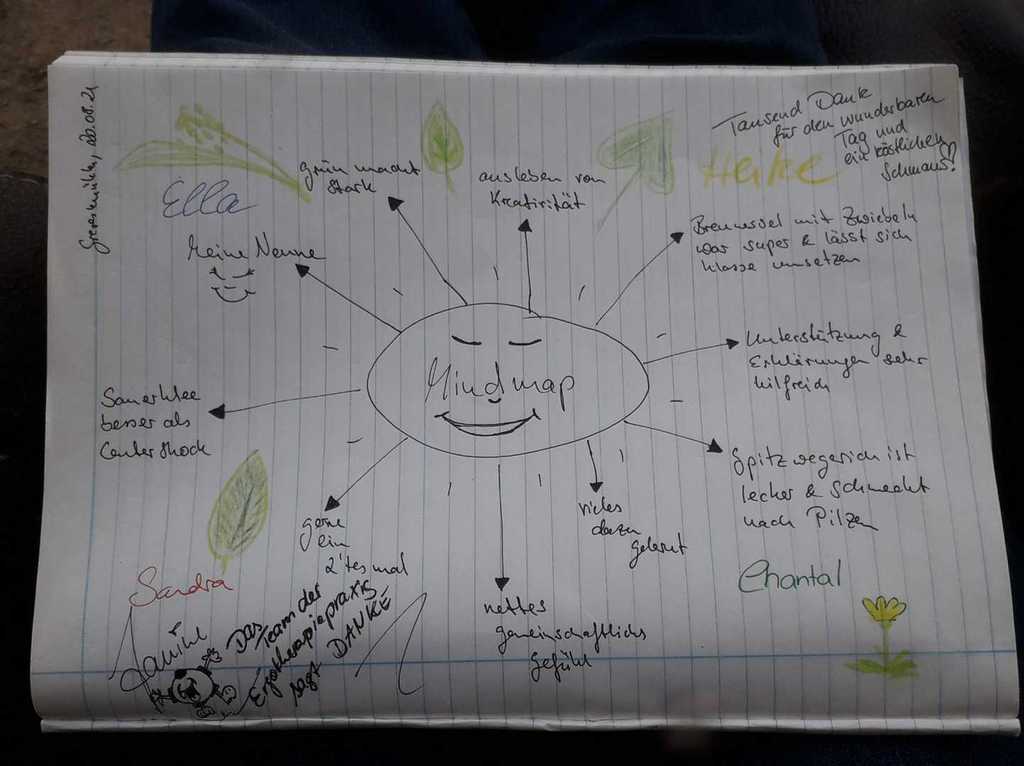 Grevesmühlen, 20.08.21
Tausend Dank
für den wunderbaren
Tag und
ein köstlichen
Schmaus!
Heike
Ella
grün macht
stark
ausleben von
Kreativität
Brennessel mit Zwiebeln
war super & lässt sich
klasse umsetzen
Meine
Mindmap
Unterstützung &
Erklärungen sehr
hilfreich
Sauerklee
besser als
Centershock
Spitzwegerich ist
lecker & schmeckt
nach Pilzen
gerne
ein
2'tes mal
vieles
dazu
gelernt
nettes
gemeinschaftlichs
gefühl
Sandra
Chantal
Das
Team der
Ergotherapiepraxis
sagt DANKE